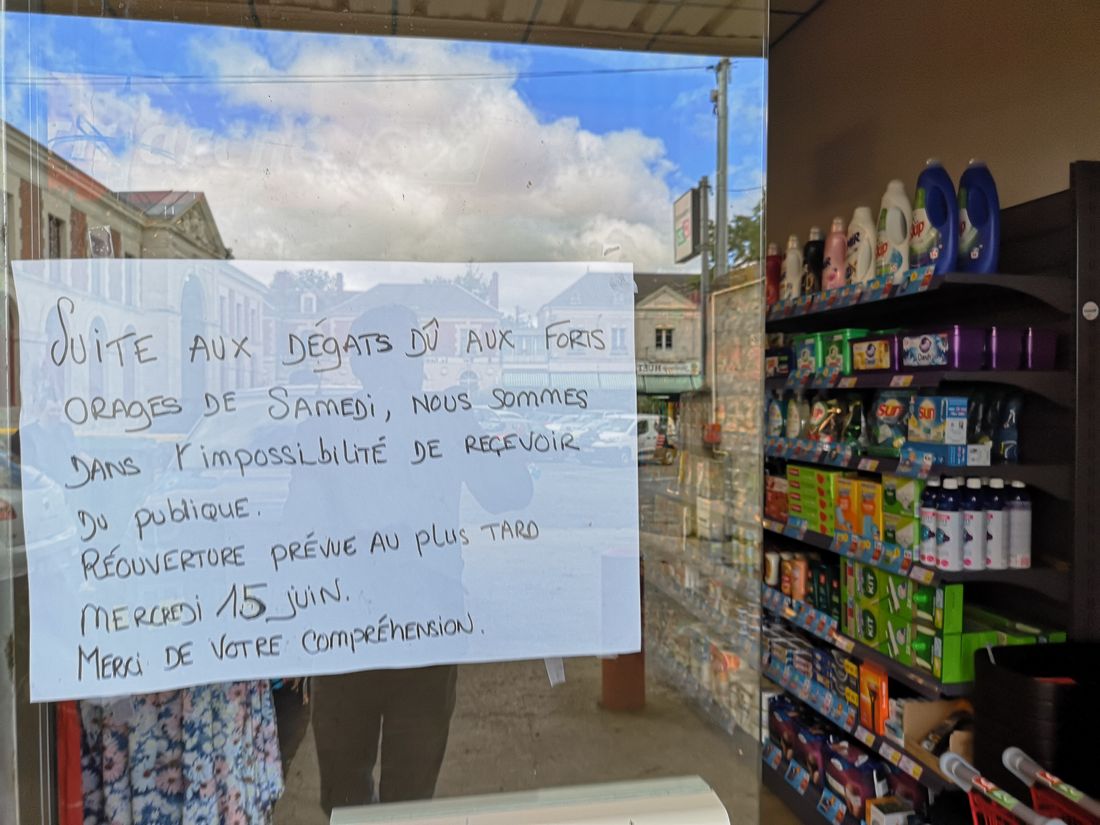 SUITE AUX DÉGATS DÛ AUX FORTS
ORAGES DE SAMEDI, NOUS SOMMES
DANS l'impossibilité DE REÇEVOIR
DU publique.
RÉOUVERTURE PRÉVUE AU plus TARD
MERCREDI 15 juin.
MERCI DE VOTRE COMPRÉHENSION.
Sun
Sun
KIT
KIT